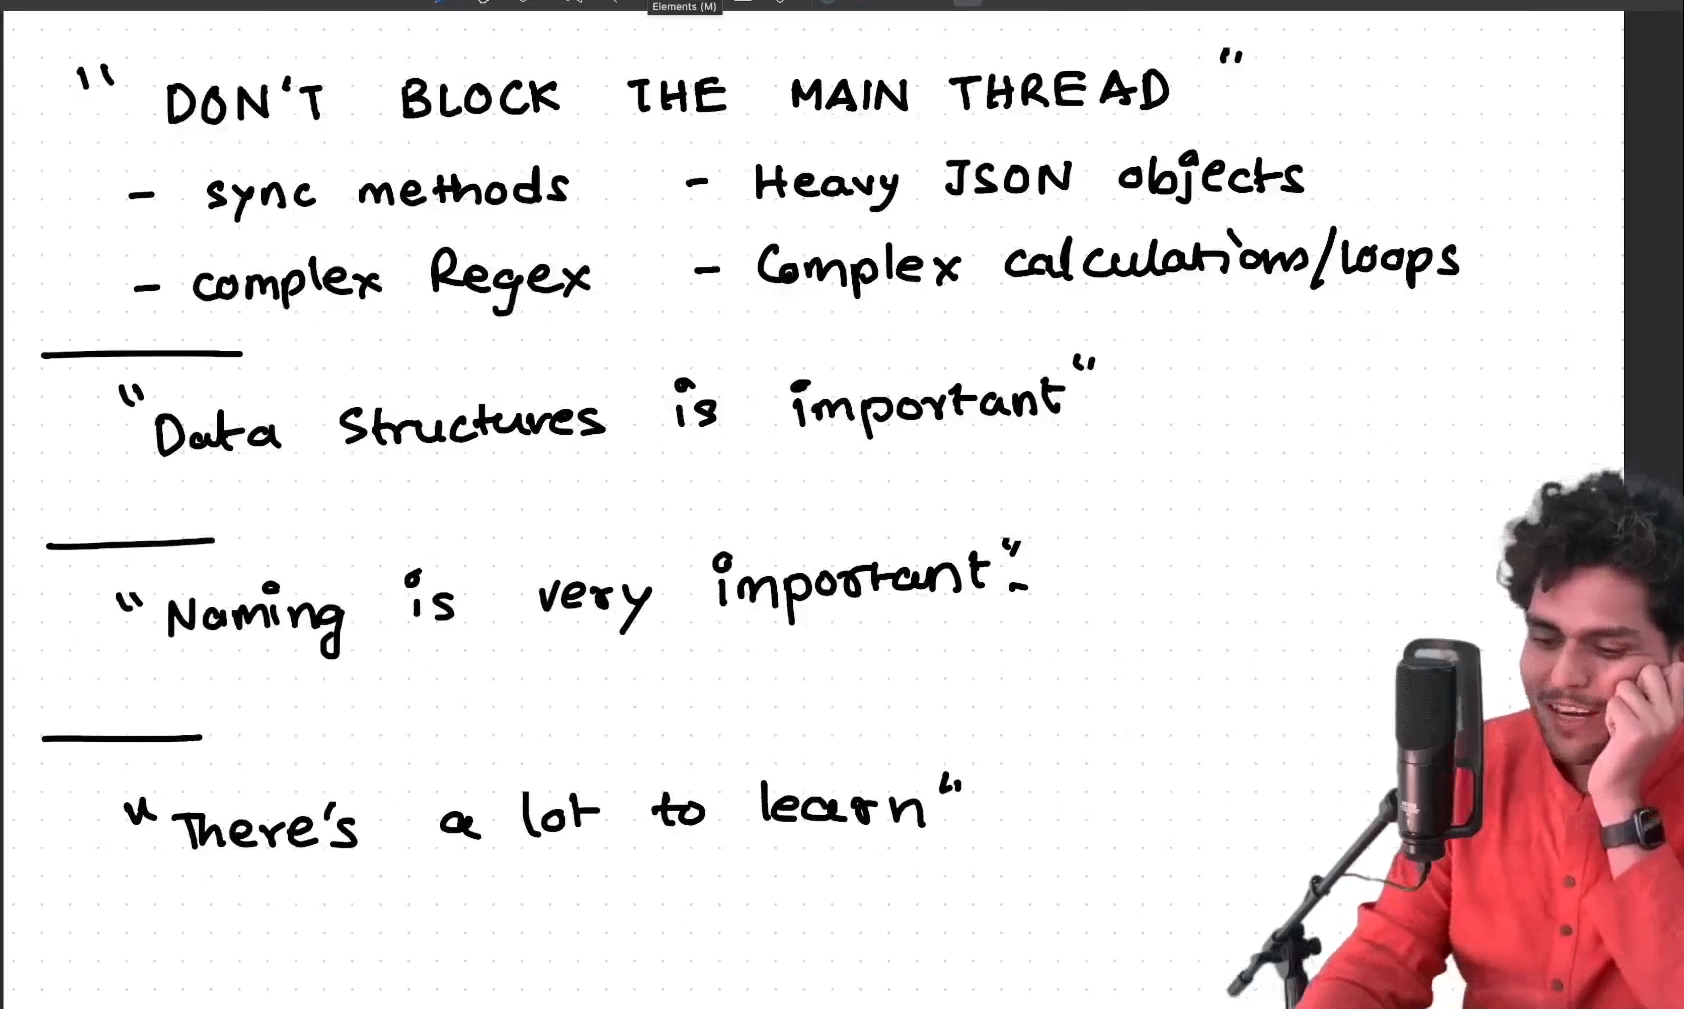 Elements (M)
"DON'T BLOCK THE MAIN THREAD"
- sync methods - Heavy JSON objects
- complex Regex - Complex calculations/loops
"Data Structures is important"
"Naming is very important".
"There's a lot to learn"